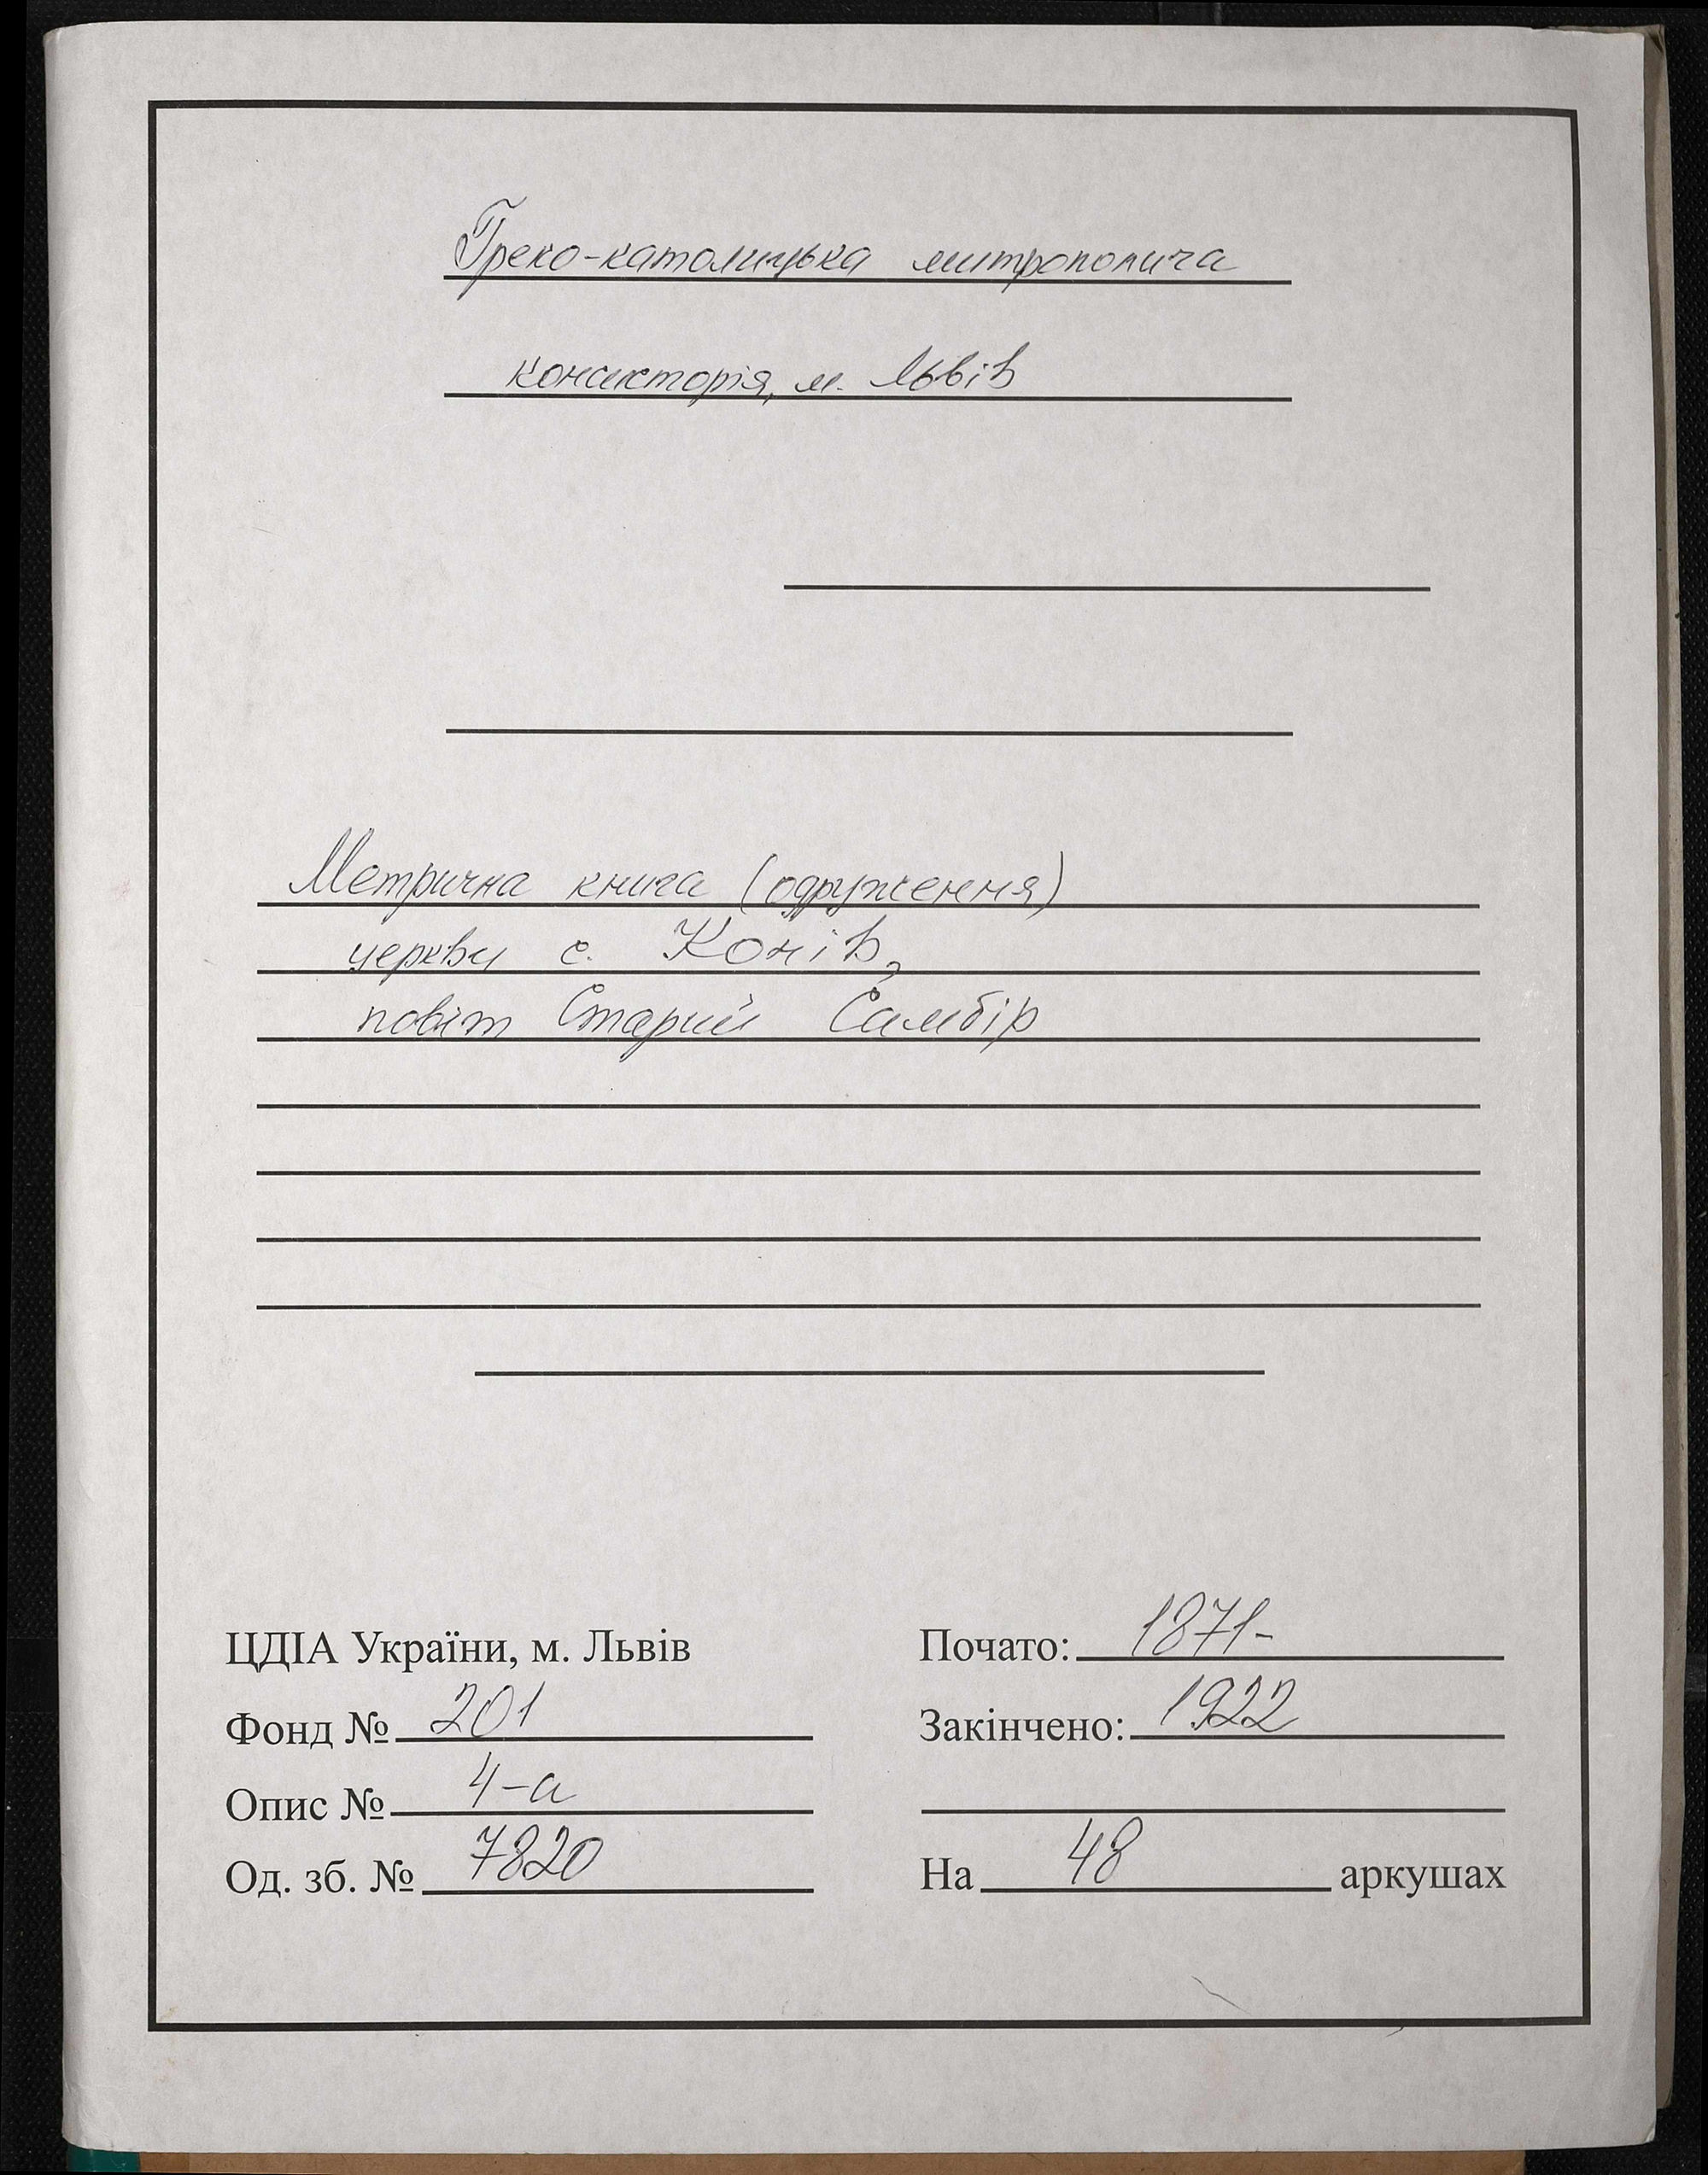 Греко-католицька митрополича
консисторія, м. Львів
Метрична книга (одруження)
церкви с. Конів,
повіт Старий Самбір
ЦДІА України, м. Львів
Фонд № 201
Опис № 4-а
Од. зб. № 7820
Почато: 1871-
Закінчено: 1922
На 48 аркушах